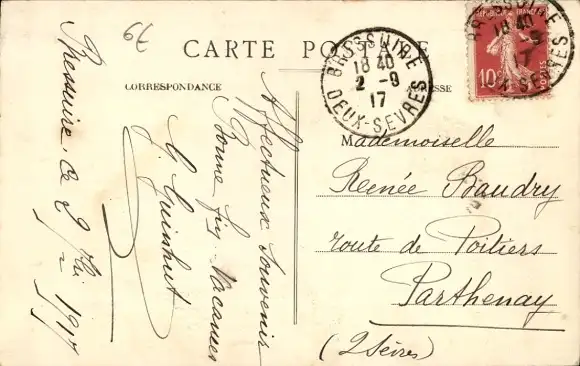 6€
CARTE POSTALE
CORRESPONDANCE
ADRESSE
BRESSUIRE
18 40
2 - 9
17
DEUX-SEVRES
REPUBLIQUE FRANCAISE
10
POSTES
Bressuire ce 2 1917
Affectueux Souvenir
Bonne fin Vacances
G.
Mademoiselle
Renée Baudry
route de Poitiers
Parthenay
(2 Sèvres)